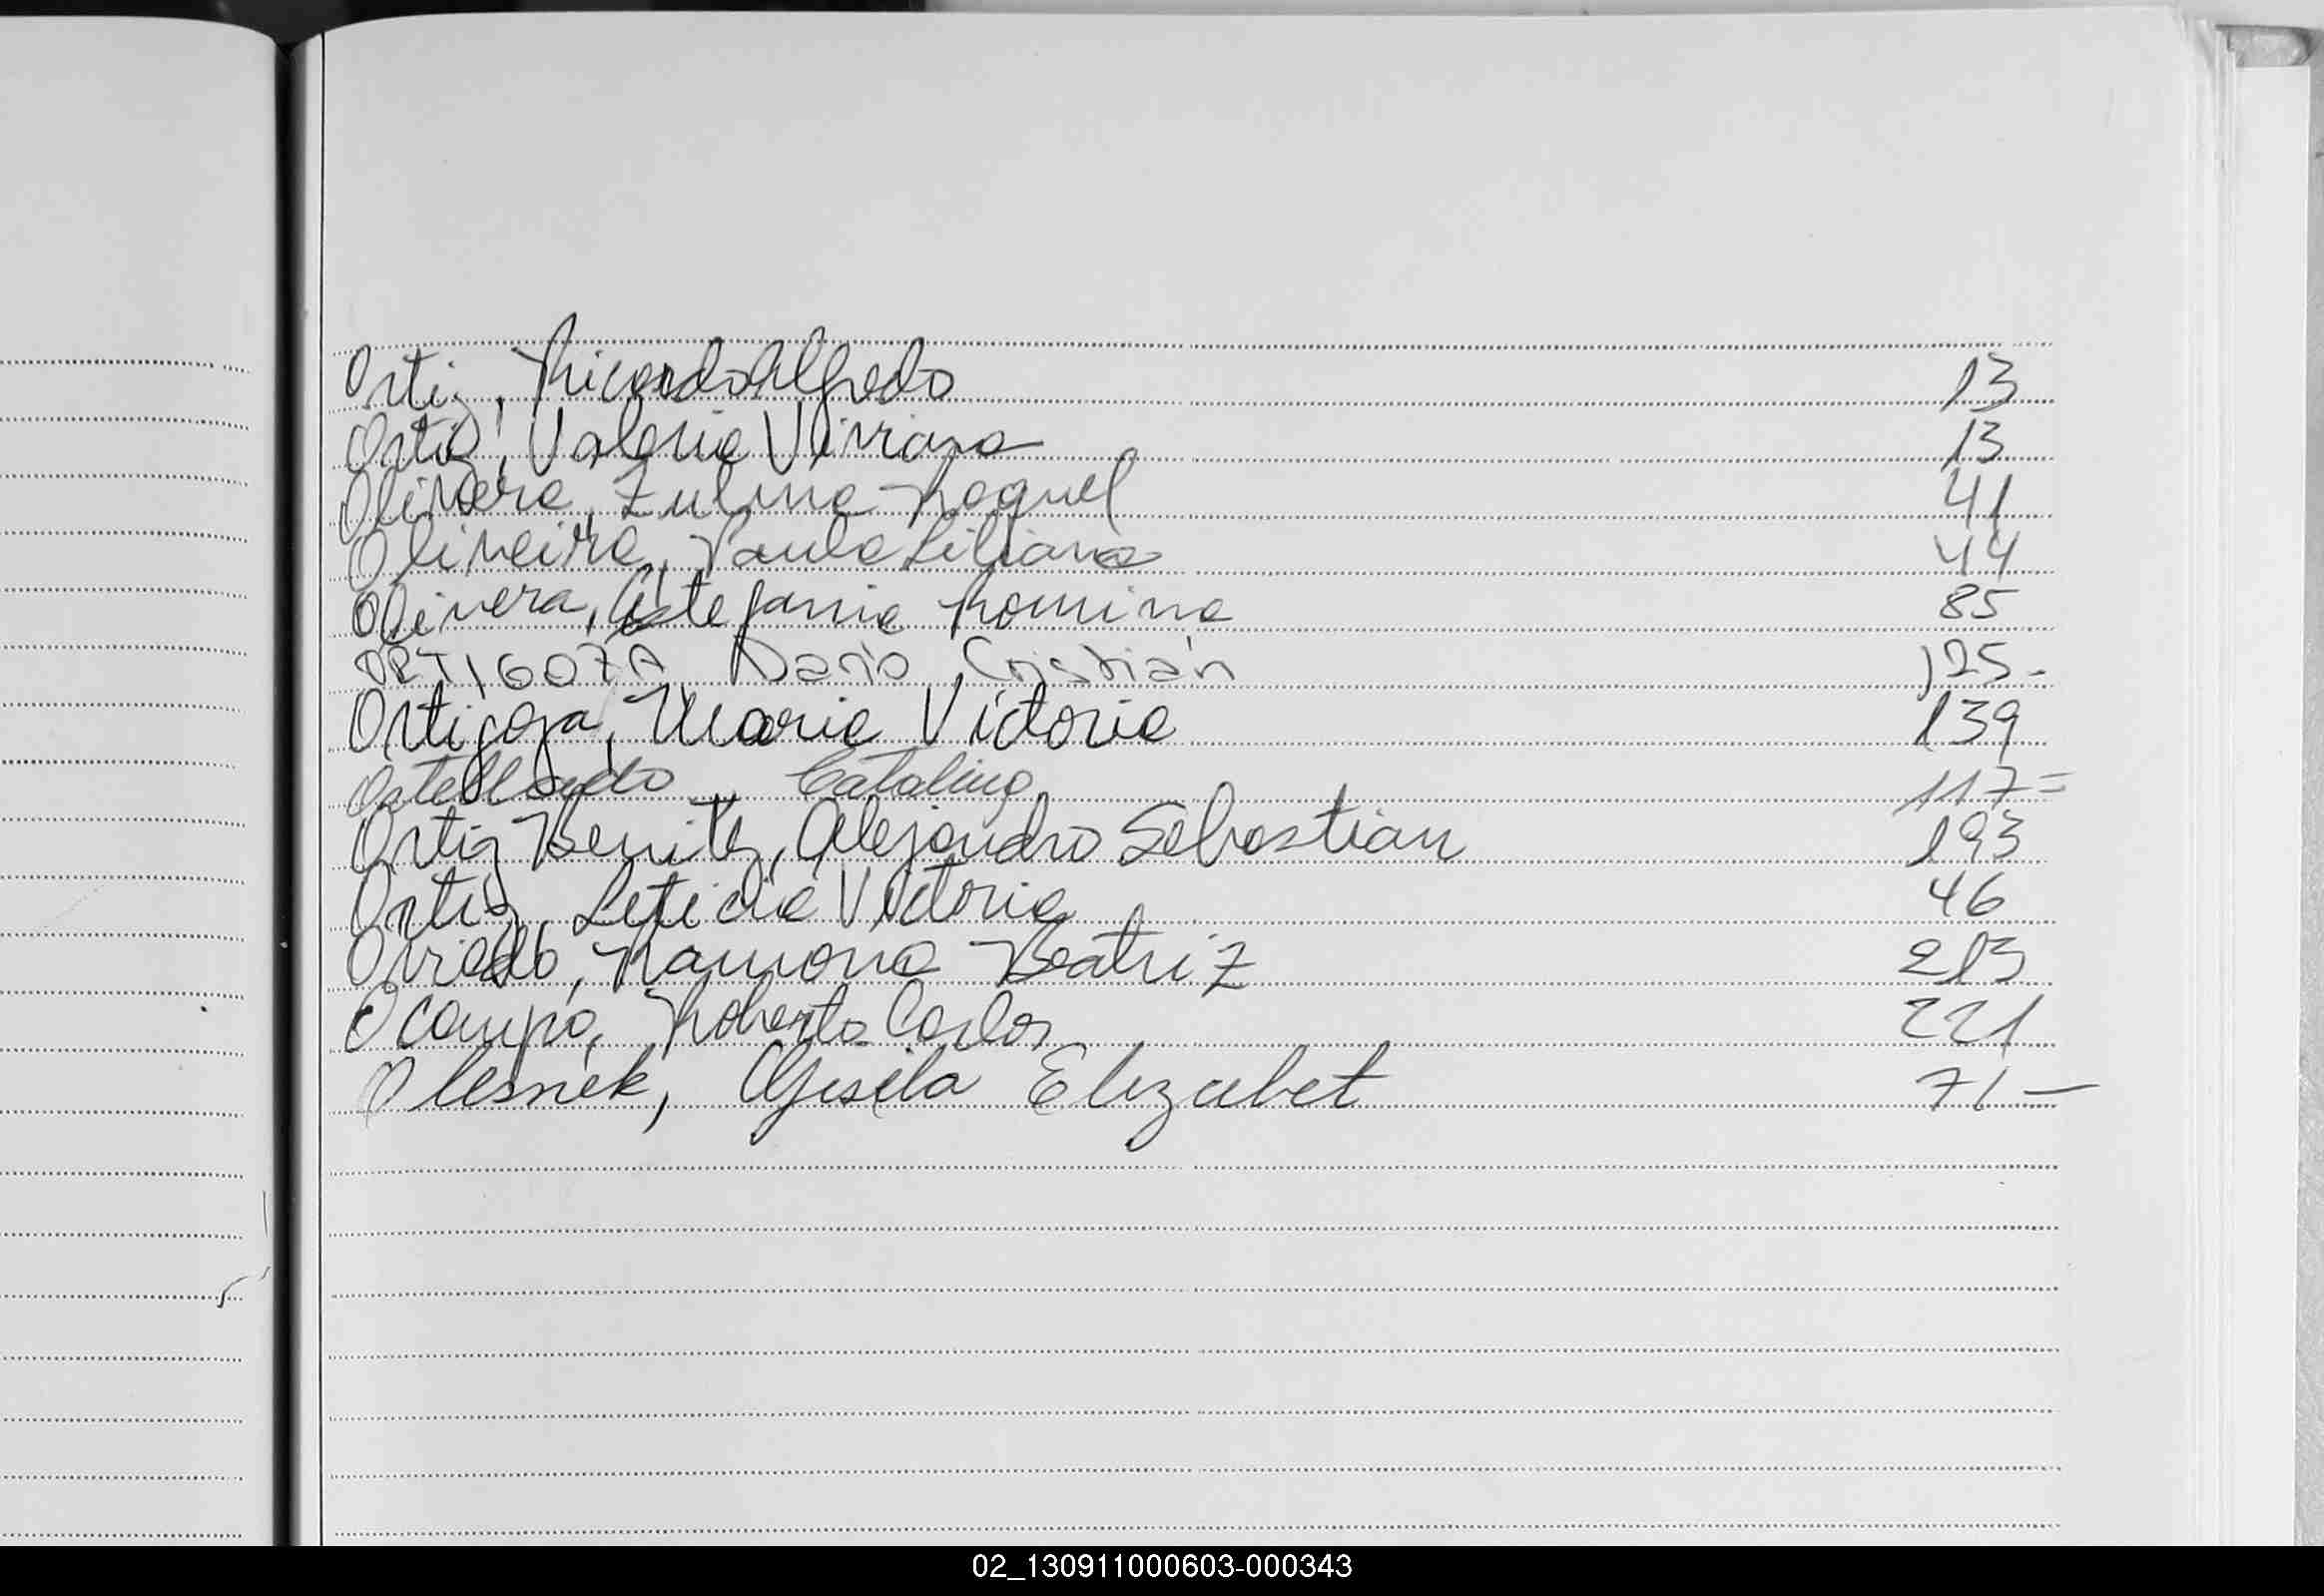 Ortiz, Ricardo Alfredo 13
Ortiz, Valeria Viviana 13
Olivera, Zulma Raquel 41
Oliveira, Paula Liliana 44
Olivera, Estefania Romina 85
ORTIGOZA Darío Cristián 125-
Ortigoza, Maria Victoria 139
Catalina 117=
Ortiz Benitez, Alejandro Sebastian 193
Ortiz, Leticia Victoria 46
Oviedo, Ramona Beatriz 213
Ocampo, Roberto Carlos 221
Olesnek, Gisela Elizabet 71-
02_130911000603-000343